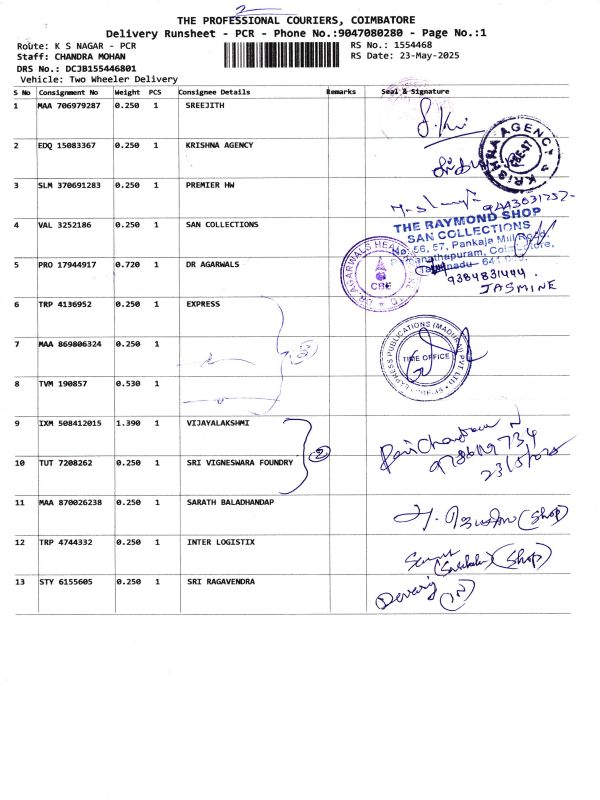 2
THE PROFESSIONAL COURIERS, COIMBATORE
Delivery Runsheet - PCR - Phone No.:9047080280 - Page No.:1
Route: K S NAGAR - PCR
RS No.: 1554468
Staff: CHANDRA MOHAN
RS Date: 23-May-2025
DRS No.: DCJB155446801
Vehicle: Two Wheeler Delivery
S No Consignment No Weight PCS Consignee Details Remarks Seal & Signature
1 MAA 706979287 0.250 1 SREEJITH
2 EDQ 15083367 0.250 1 KRISHNA AGENCY
KRISHNA AGENCY
CBE-37
3 SLM 370691283 0.250 1 PREMIER HW
9443031757-
4 VAL 3252186 0.250 1 SAN COLLECTIONS
THE RAYMOND SHOP
SAN COLLECTIONS
No. 56, 57, Pankaja Mill Road,
Ramanathapuram, Coimbatore,
Tamilnadu - 641
5 PRO 17944917 0.720 1 DR AGARWALS
DR. AGARWALS HEALTH
CBE
9384831444.
JASMINE
6 TRP 4136952 0.250 1 EXPRESS
7 MAA 869806324 0.250 1
EXPRESS PUBLICATIONS (MADURAI) PVT LTD
TIME OFFICE
8 TVM 190857 0.530 1
9 IXM 508412015 1.390 1 VIJAYALAKSHMI
2
Ravichandran N
23/5/2025
10 TUT 7208262 0.250 1 SRI VIGNESWARA FOUNDRY
11 MAA 870026238 0.250 1 SARATH BALADHANDAP
(Shop)
12 TRP 4744332 0.250 1 INTER LOGISTIX
(Shop)
13 STY 6155605 0.250 1 SRI RAGAVENDRA
Devaraj